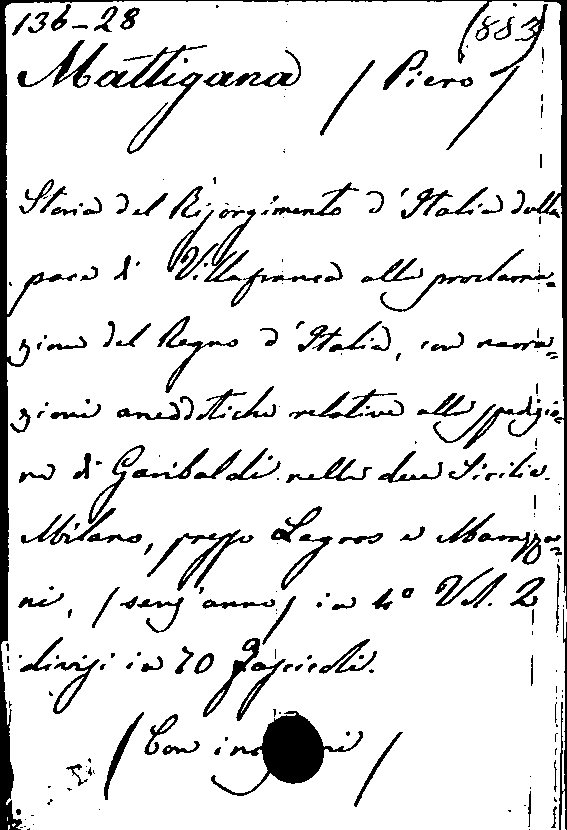 136-28 (883)
Mattigana (Piero)
Storia del Risorgimento d'Italia dalla
pace di Villafranca alla proclama=
zione del Regno d'Italia, con narra=
zioni aneddotiche relative alla spedizio=
ne di Garibaldi nelle due Sicilie.
Milano, presso Legros e Marazza=
ni, (senz'anno) in 4° Vol. 2
divisi in 70 Fascicoli.
(Con